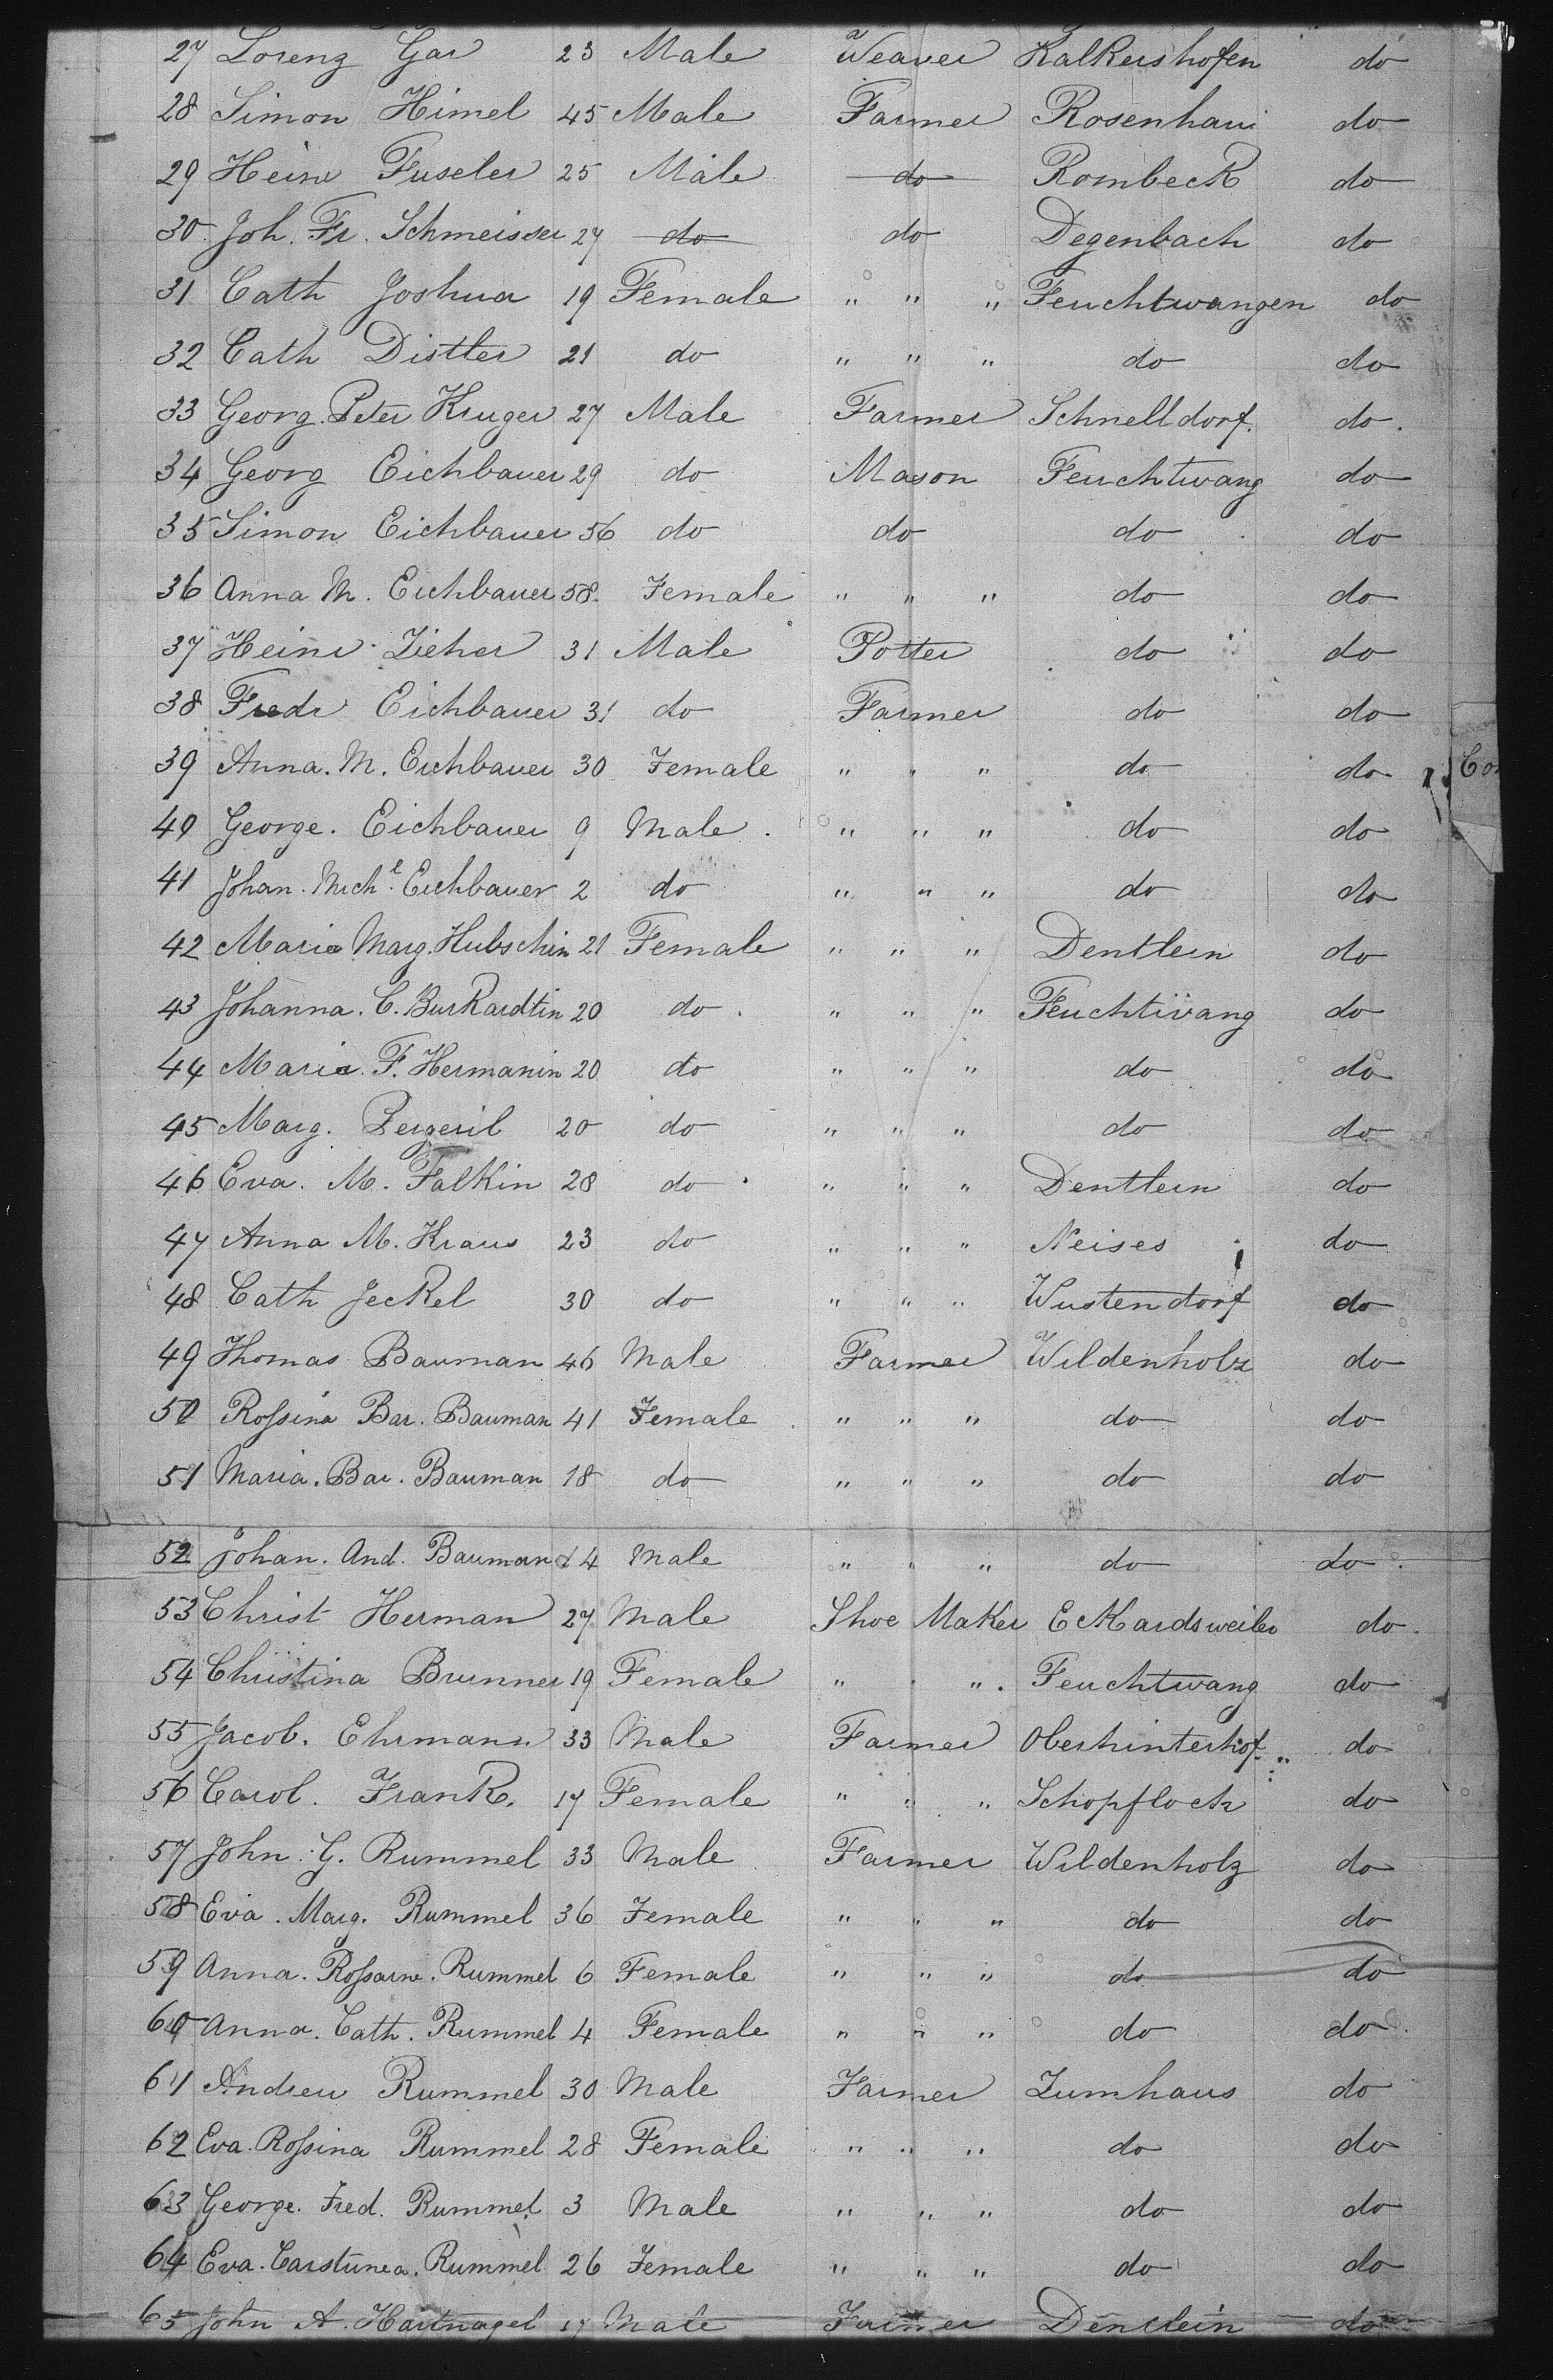 27 Lorenz Gar 23 Male Weaver Kalkershofen do
28 Simon Himel 45 Male Farmer Rosenhaui do
29 Heinr Fuseler 25 Male do Rombeck do
30 Joh. Fr. Schmeisser 27 do do Degenbach do
31 Cath Joshua 19 Female " " " Feuchtwangen do
32 Cath Distler 21 do " " " do do
33 Georg. Peter Kruger 27 Male Farmer Schnelldorf. do.
34 Georg Eichbauer 29 do Mason Feuchtwang do
35 Simon Eichbauer 56 do do do do
36 Anna M. Eichbauer 58. Female " " " do do
37 Heinr Zieher 31 Male Potter do do
38 Fredr Eichbauer 31 do Farmer do do
39 Anna. M. Eichbauer 30 Female " " " do do
Con
40 George. Eichbauer 9 Male. " " " do do
41 Johan. Mich.l Eichbauer 2 do " " " do do
42 Maria Marg. Hubschin 21 Female " " " Dentlein do
43 Johanna. C. Burkardtin 20 do. " " " Feuchtwang do
44 Maria. F. Hermanin 20 do " " " do do
45 Marg. Pergeril 20 do " " " do do
46 Eva. M. Falkin 28 do " " " Dentlein do
47 Anna M. Kraus 23 do " " " Neises do
48 Cath Jeckel 30 do " " " Wustendorf do
49 Thomas Bauman 46 Male Farmer Wildenholz do
50 Rossina Bar. Bauman 41 Female " " " do do
51 Maria. Bar. Bauman 18 do " " " do do
52 Johan. And. Bauman 14 Male " " " do do.
53 Christ Herman 27 Male Shoe Maker Eckardsweiler do.
54 Christina Brunner 19 Female " " ". Feuchtwang do
55 Jacob. Ehrmann 33 Male Farmer Oberhinterhof do
56 Carol. Frank. 17 Female " " " Schopfloch do
57 John. G. Rummel 33 Male Farmer Wildenholz do
58 Eva. Marg. Rummel 36 Female " " " do do
59 Anna. Rossaine. Rummel 6 Female " " " do do
60 Anna. Cath. Rummel 4 Female " " " do do.
61 Andreu Rummel 30 Male Farmer Zumhaus do
62 Eva. Rossina Rummel 28 Female " " " do do
63 George. Fred. Rummel 3 Male " " " do do
64 Eva. Carstunea. Rummel 26 Female " " " do do
65 John A. Hartnagel 17 Male Farmer Dentlein do